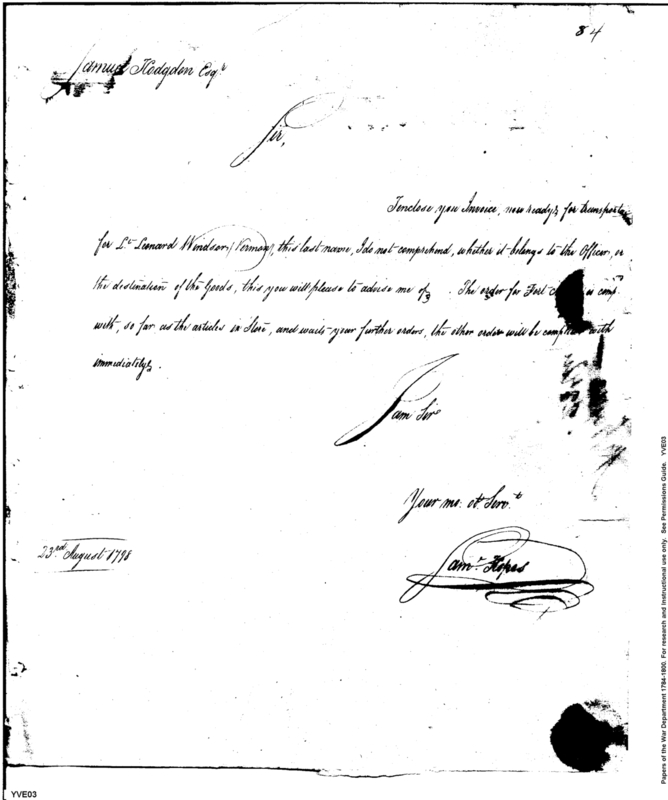 84
Samuel Hodgdon Esqr
Sir,
I enclose you Invoice, now ready, for transporta
for Lt Leonard Windsor, (Vermont), this last name, I do not comprehend, whether it belongs to the Officer, or
the destination of the Goods, this you will please to advise me of. The order for Fort is comp
with, so far as the articles in Store, and waits your further orders, the other order will be with
immediately.
I am Sir
Your mo. ot. Servt
23rd August 1798
Saml
YVE03
Papers of the War Department 1784-1800. For research and Instructional use only. See Permissions Guide. YVE03